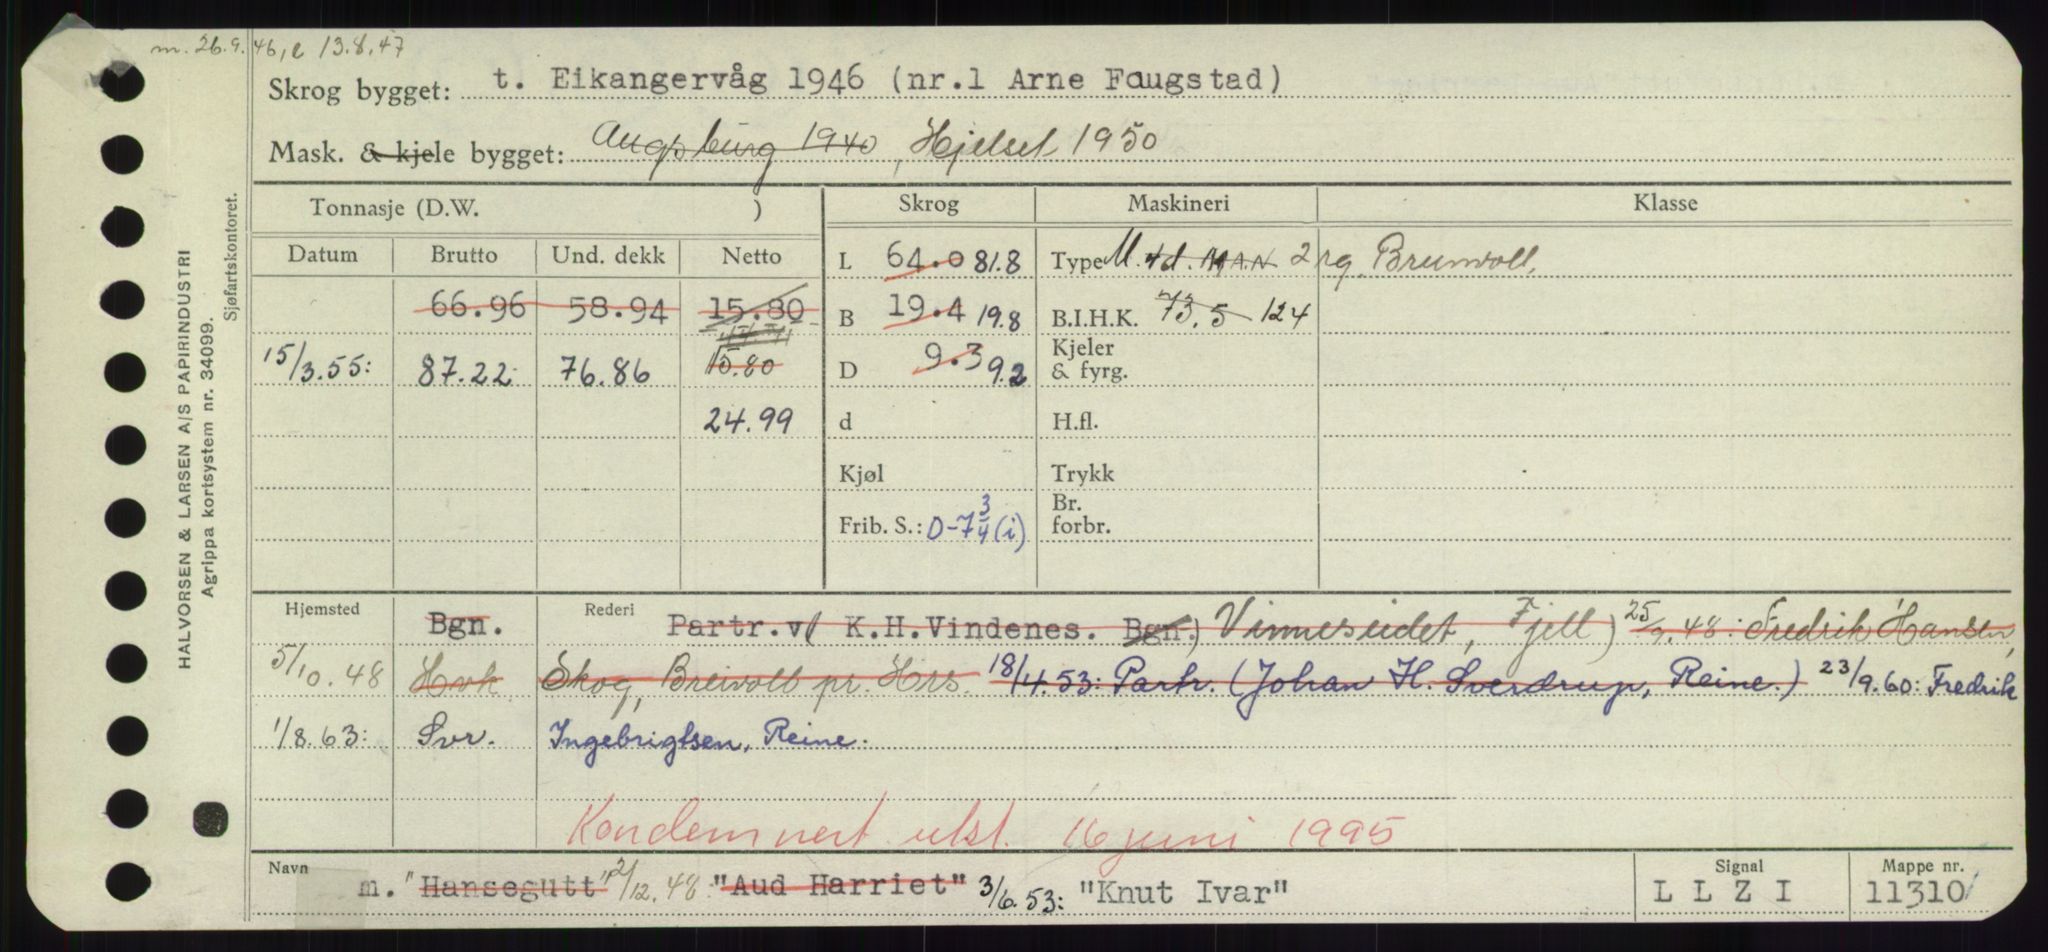 m. 26.9.46, e 13.8.47
Skrog bygget: t. Eikangervåg 1946 (nr.1 Arne Faugstad)
Mask. & kjele bygget: Augsburg 1940, Hjelset 1950
Tonnasje (D.W. ) Skrog Maskineri Klasse
Datum Brutto Und. dekk Netto L 64.0 81.8 Type M. 4d. MAN 2 rg. Brunvoll,
66.96 58.94 15.80 B 19.4 19.8 B.I.H.K. 73.5 124
15/3.55: 87.22 76.86 15.80 D 9.3 9.2 Kjeler & fyrg.
24.99 d H.fl.
Kjøl Trykk
Frib. S.: 0-7 3/4 (i) Br. forbr.
Hjemsted Bgn. Rederi Partr.v/ K.H.Vindenes. Bgn.) Vinneseidet, Fjell) 25/9.48: Fredrik Hansen,
5/10.48 Hvk Skog, Breivoll pr. Hrs. 18/4.53: Partr. (Johan H. Sverdrup, Reine.) 23/9.60: Fredrik
1/8.63: Svr. Ingebrigtsen, Reine.
Kondemnert utst. 16 juni 1995
Navn m. "Hansegutt" 2/12.48: "Aud Harriet" 3/6.53: "Knut Ivar" Signal LLZI Mappe nr. 11310
HALVORSEN & LARSEN A/S PAPIRINDUSTRI
Agrippa kortsystem nr. 34099.
Sjøfartskontoret.